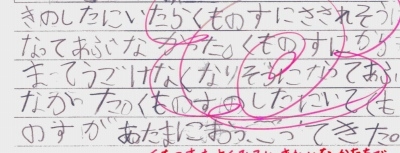 きのしたにいたらくものすにさされそうに
なってあぶなかった。くものすにから
まってうごけなくなりそうになってあぶ
なかった。くものすのしたにいてくも
のすがあたまにおっこってきた。